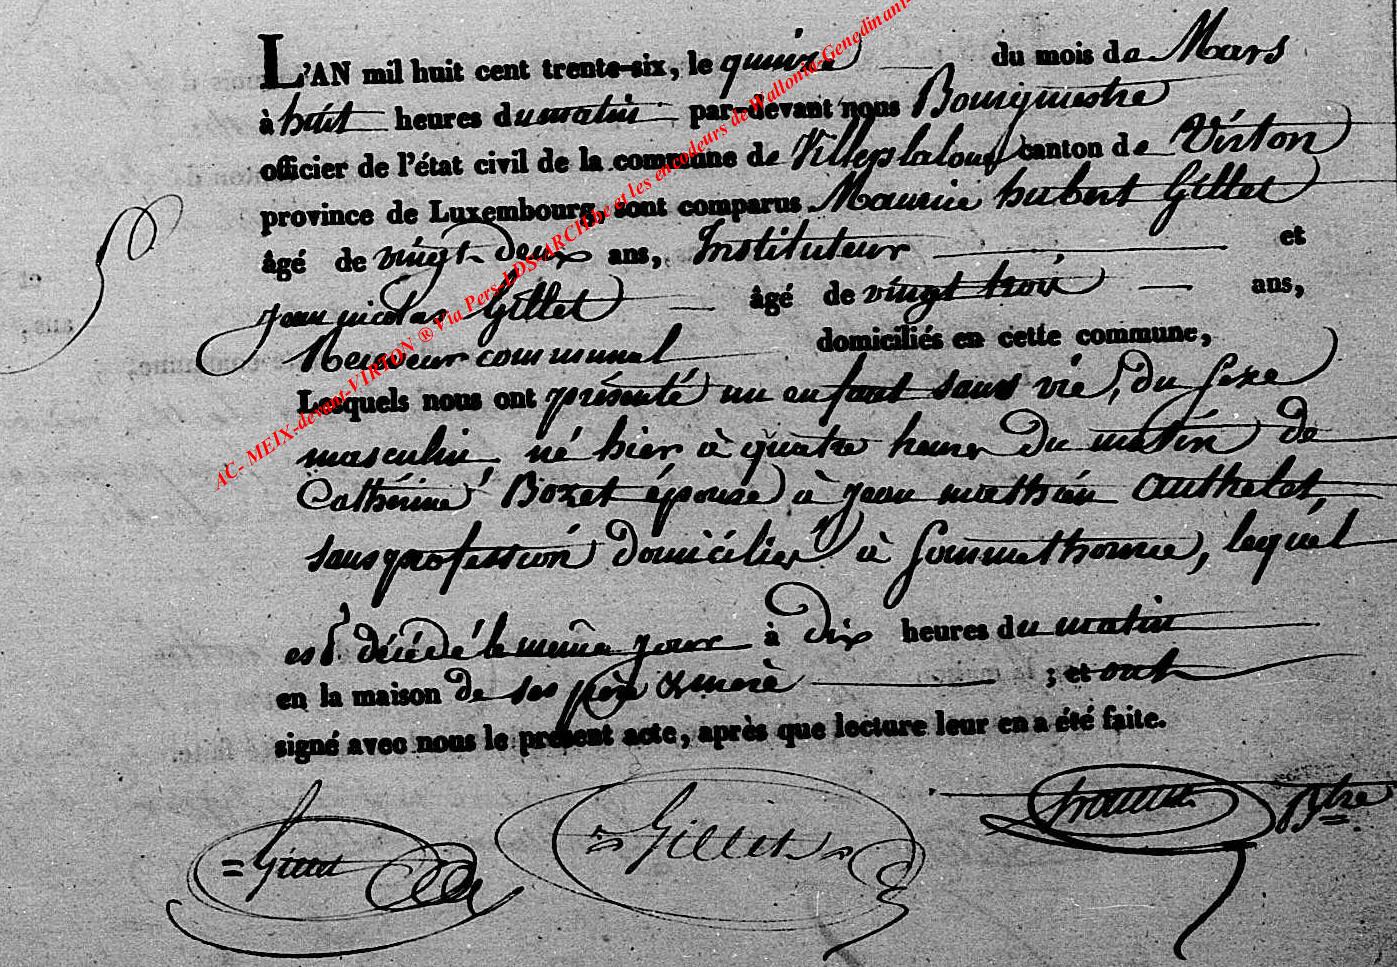 L'AN mil huit cent trente-six, le quinze du mois de Mars
à huit heures du matin par-devant nous Bourguestre
officier de l'état civil de la commune de Villerslaloue canton de Virton
province de Luxembourg, sont comparus Maurice hubert Gillet
âgé de vingt-deux ans, Instituteur et
jean nicolas Gillet âgé de vingt trois ans,
Receveur communal domiciliés en cette commune,
Lesquels nous ont présenté un enfant sans vie, du sexe
masculin, né hier à quatre heures du matin de
Cathérine Bozet épouse à jean mathieu Authelet,
sans profession domicilier à Sommethonne, lequel
est décédé le même jour à dix heures du matin
en la maison de ses père & mère ; et ont
signé avec nous le présent acte, après que lecture leur en a été faite.
Gillet Gillet Btre
AC- MEIX-devant-VIRTON ® Via Pers-LDS-ARCHbe et les encodeurs de Wallonia-Genedinant-